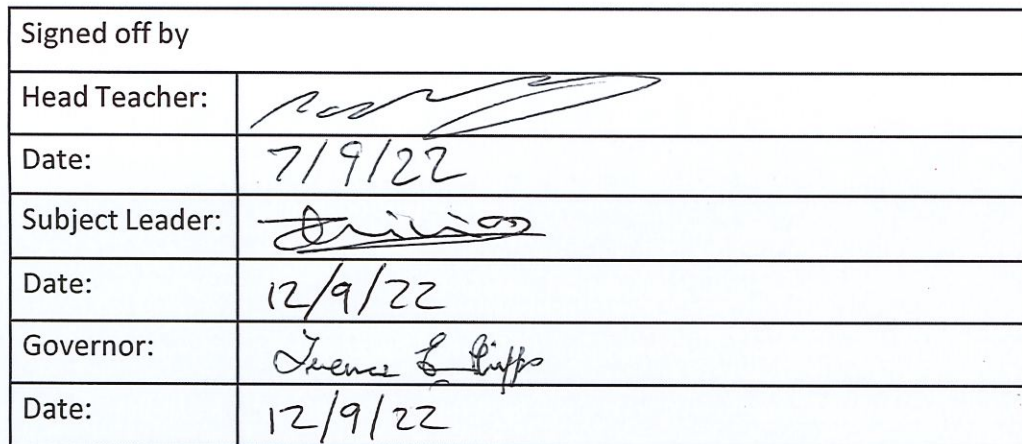 Signed off by
Head Teacher:
Date: 7/9/22
Subject Leader:
Date: 12/9/22
Governor: Terence
Date: 12/9/22